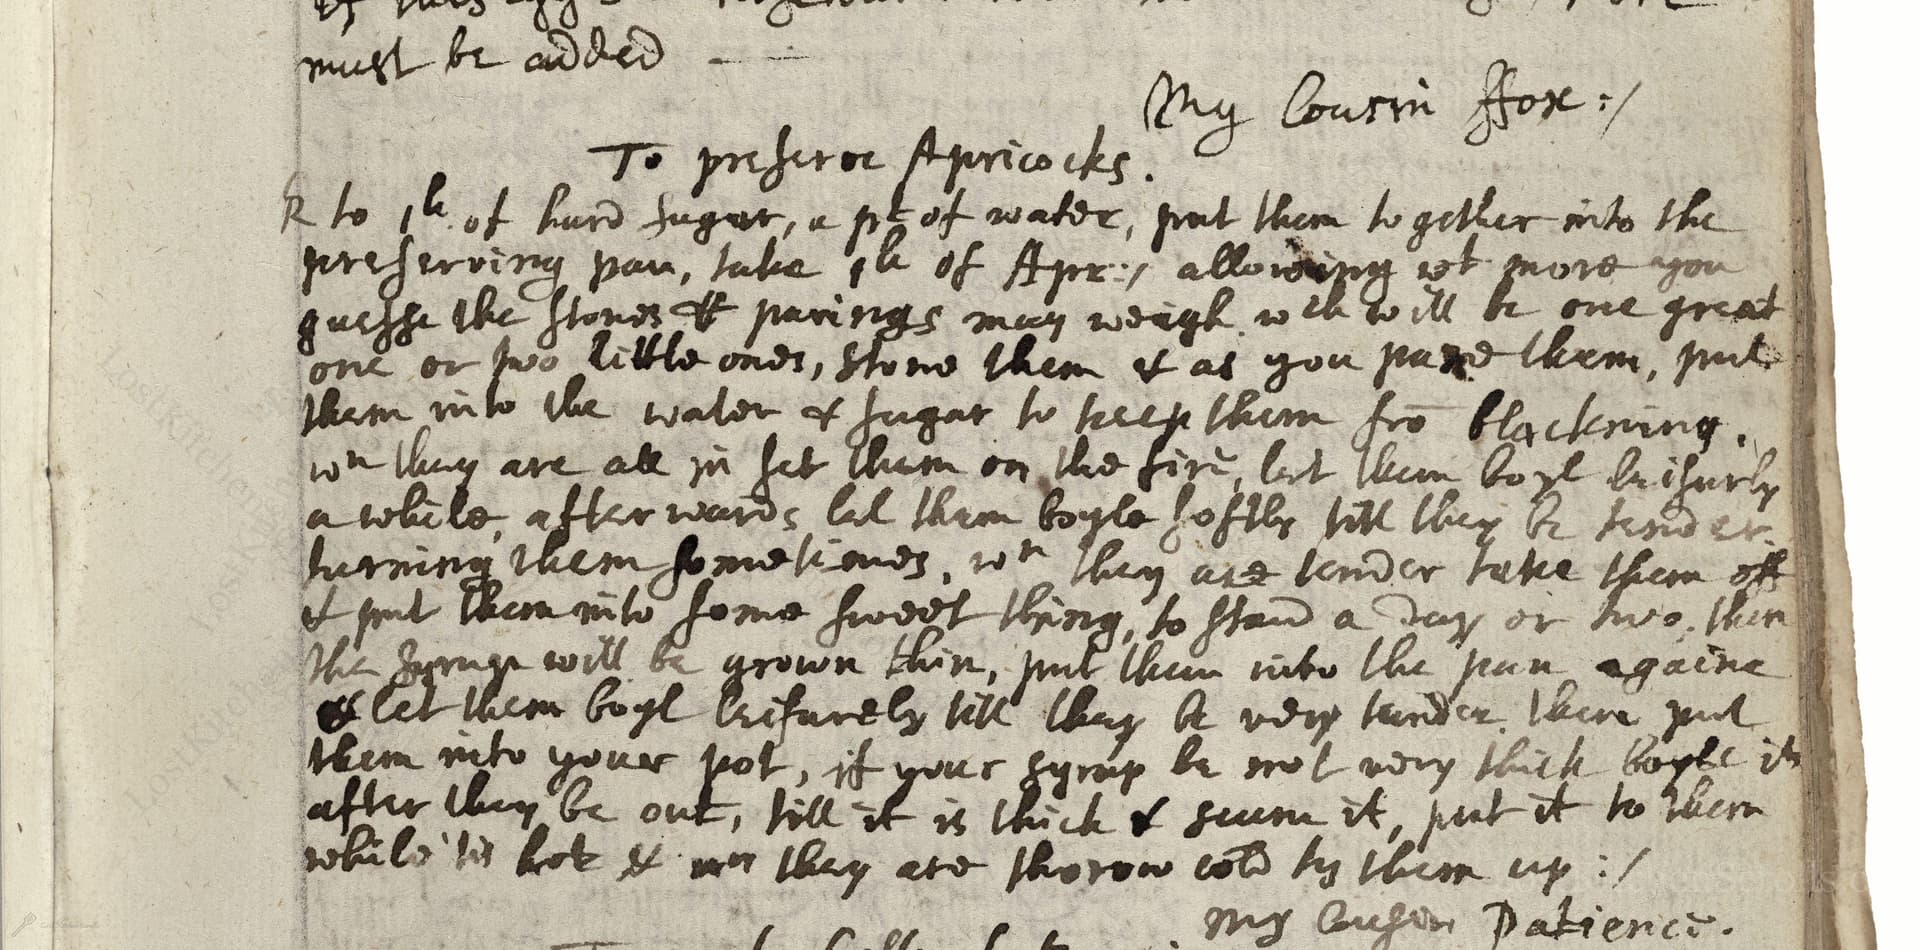 must be added
My Cousin ffox :/
To preserve Apricocks.
R to 1lb. of hard sugar, a pt of water, put them together into the
preserving pan, take 1lb of Apr:/ allowing wt more you
guesse the stones & parings may weigh wch will be one great
one or two little ones, stone them & as you pare them, put
them into the water & sugar to keep them frō blackning.
wn they are all in set them on the fire, let them boyl leisurly
a while, afterwards let them boyle softly till they be tender.
turning them sometimes, wn they are tender take them off
& put them into some sweet thing, to stand a day or two, then
the Syrupe will be grown thin, put them into the pan againe
& let them boyl leisurely till they be very tender then put
them into your pot, if your syrup be not very thick boyle it
after they be out, till it is thick & scum it, put it to them
while 'tis hot & wn they are thorow cold ty them up :/
My Cousin Patience.